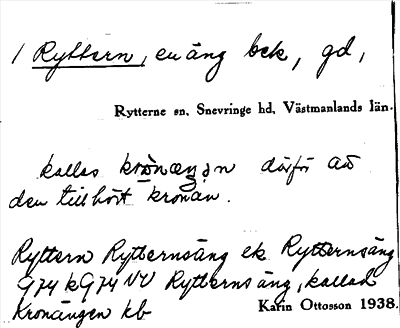 / Ryttern, en äng bek, gd,
Rytterne sn, Snevringe hd, Västmanlands län.
kallas kronæŋən därför att
den tillhört kronan.
Ryttern Rytternsäng ek Rytternsäng
G74 kG74 NV Rytternsäng, kallad
Kronängen kb
Karin Ottosson 1938.